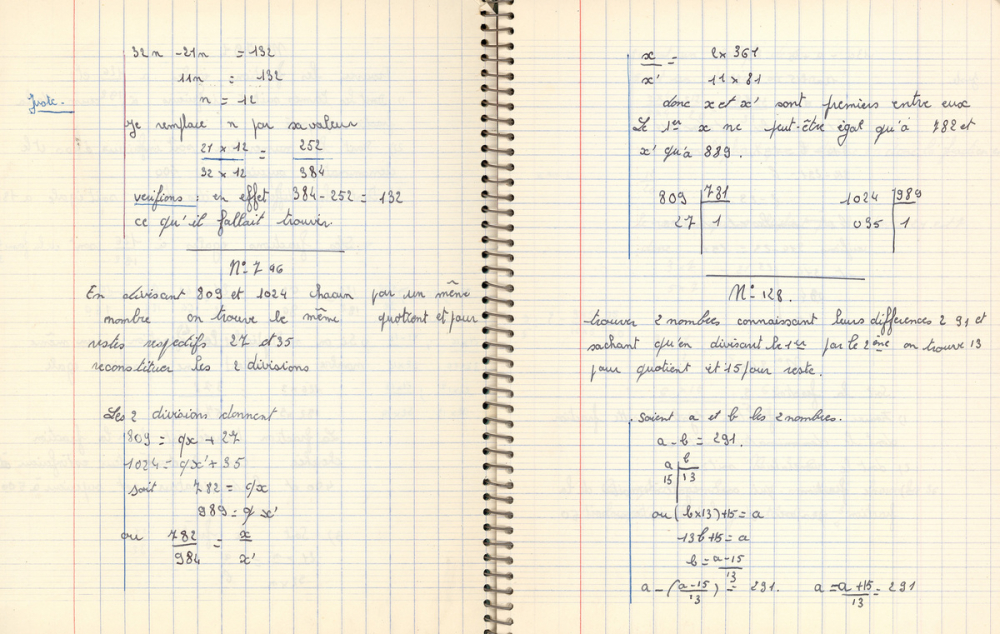 32n - 21n = 132
11n = 132
n = 12
Juste.
Je remplace n par sa valeur
21 x 12 = 252
32 x 12 384
verifions : en effet 384 - 252 = 132
ce qu'il fallait trouver
N° 796
En divisant 809 et 1024 chacun par un même
nombre on trouve le même quotient et pour
restes respectifs 27 et 35
reconstituer les 2 divisions
Les 2 divisions donnent
809 = qx + 27
1024 = qx' + 35
soit 782 = qx
989 = q x'
ou 782 = x
984 x'
x = 2 x 361
x' 11 x 81
donc x et x' sont premiers entre eux
Le 1er x ne peut-être égal qu'à 782 et
x' qu'à 889.
809 781 1024 989
27 1 035 1
N° 128.
trouver 2 nombres connaissant leurs differences 291 et
sachant qu'en divisant le 1er par le 2ème on trouve 13
pour quotient et 15 pour reste.
soient a et b les 2 nombres.
a - b = 291.
a b
15 13
ou (b x 13) + 15 = a
13b + 15 = a
b = a - 15
13
a - (a - 15) = 291. a = a + 15 = 291
13 13